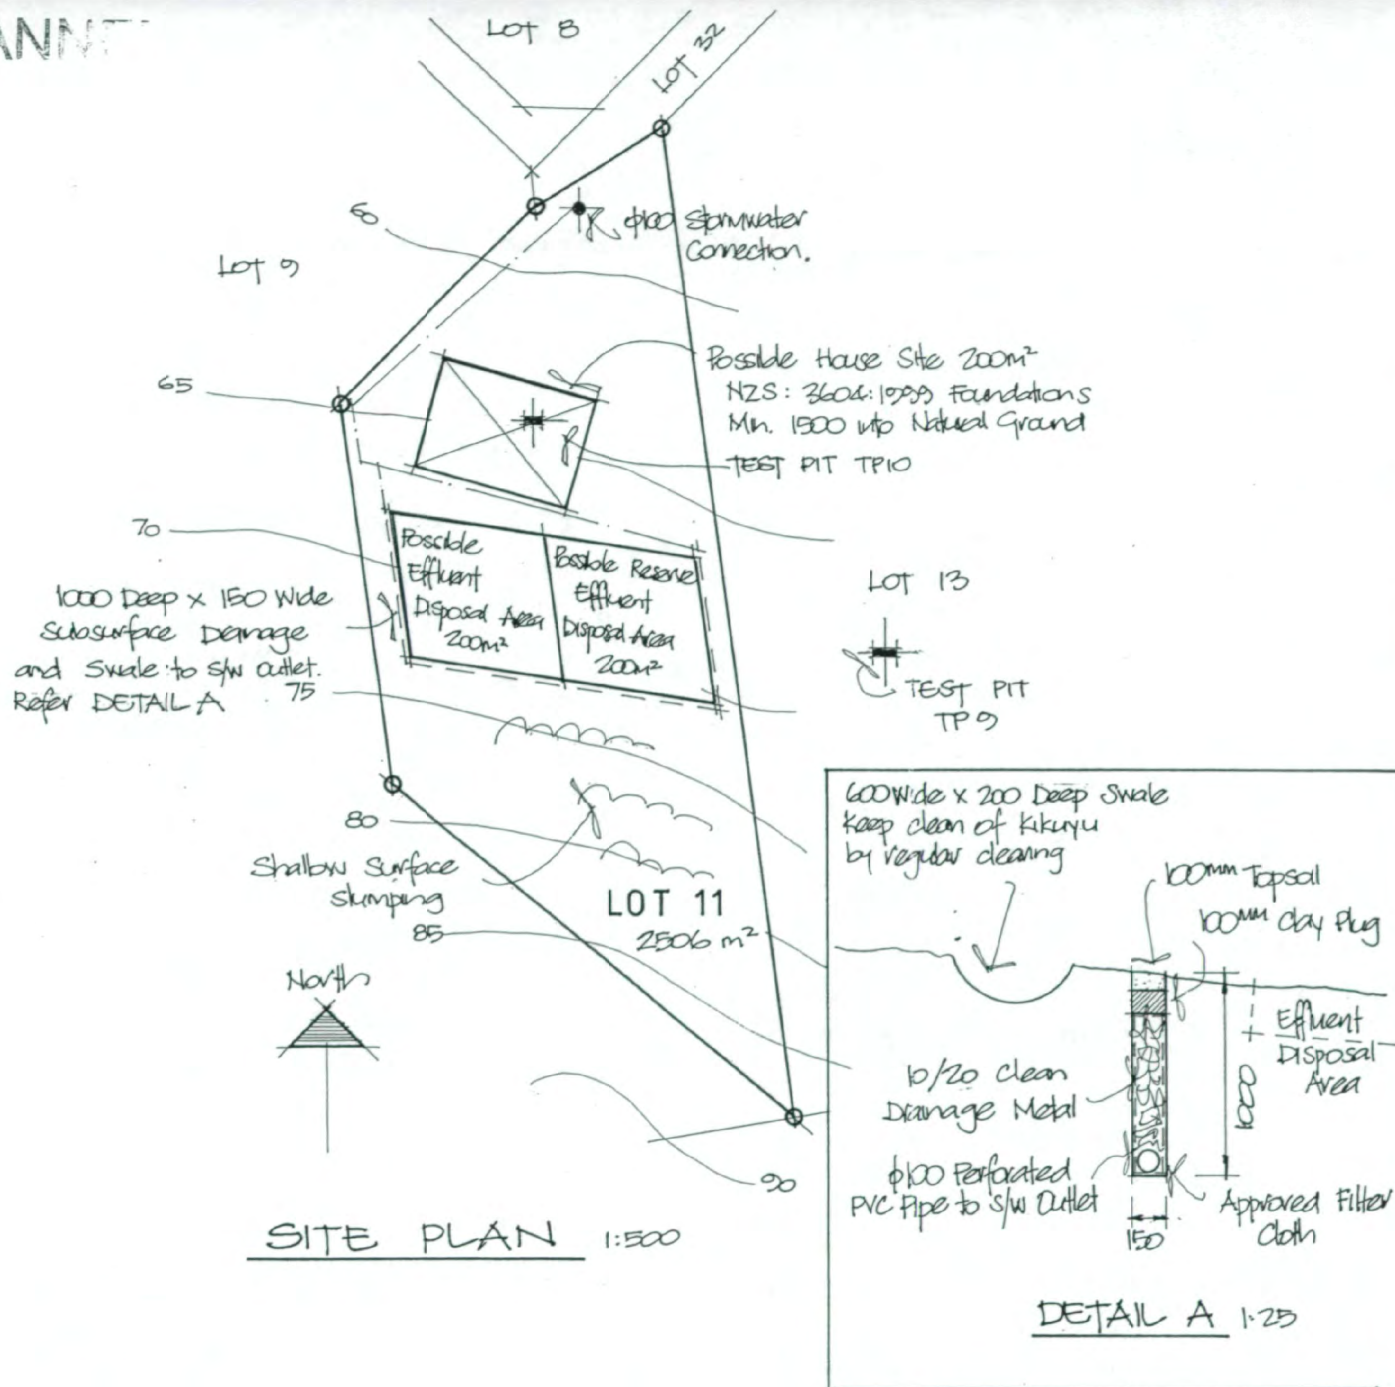 LOT 8
LOT 32
60
φ100 Stormwater
Connection.
LOT 9
65
Possible House Site 200m²
NZS: 3604:1999 Foundations
Min. 1500 into Natural Ground
TEST PIT TP10
70
Possible
Effluent
Disposal Area
200m²
Possible Reserve
Effluent
Disposal Area
200m²
LOT 13
TEST PIT
TP9
1000 Deep x 150 Wide
Subsurface Drainage
and Swale to S/W outlet.
Refer DETAIL A
75
80
Shallow Surface
Slumping
85
LOT 11
2506 m²
North
90
SITE PLAN 1:500
600 Wide x 200 Deep Swale
Keep clean of Kikuyu
by regular clearing
100mm Topsoil
100mm Clay Plug
Effluent
Disposal
Area
1000
10/20 Clean
Drainage Metal
φ100 Perforated
PVC Pipe to S/W Outlet
Approved Filter
Cloth
150
DETAIL A 1:25